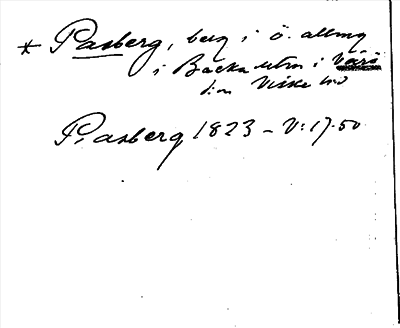 * Pasberg, berg i ö. allmg
i Backa utm i Värö
s:n Viske hd
P. asberg 1823 - V: 17.50